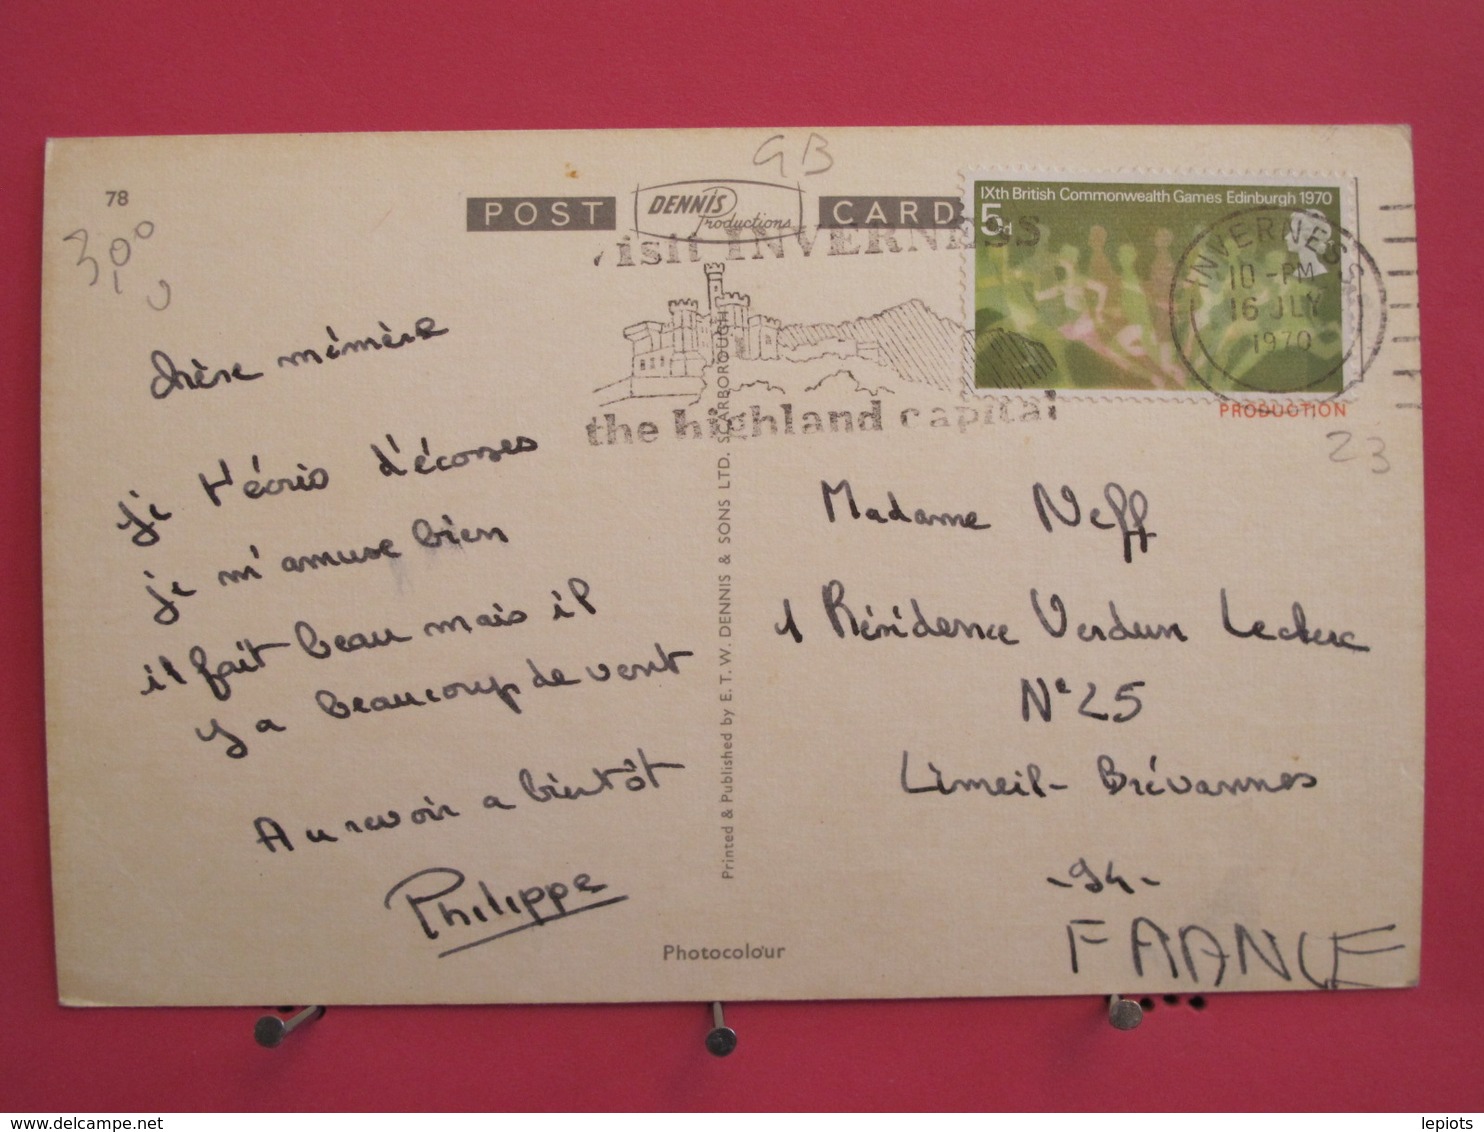 78
GB
POST
DENNIS
Productions
CARD
IXth British Commonwealth Games Edinburgh 1970
5d
visit INVERNESS
the highland capital
INVERNESS
10 - PM
16 JLY
1970
PRODUCTION
23
chère mémère
je t'écris d'écosses
je m'amuse bien
il fait beau mais il
y a beaucoup de vent
Au revoir a bientôt
Philippe
Printed & Published by E. T. W. DENNIS & SONS LTD. SCARBOROUGH
Madame Neff
1 Résidence Verdun Leclerc
N° 25
Limeil-Brévannes
-94-
FRANCE
Photocolour
lepiots